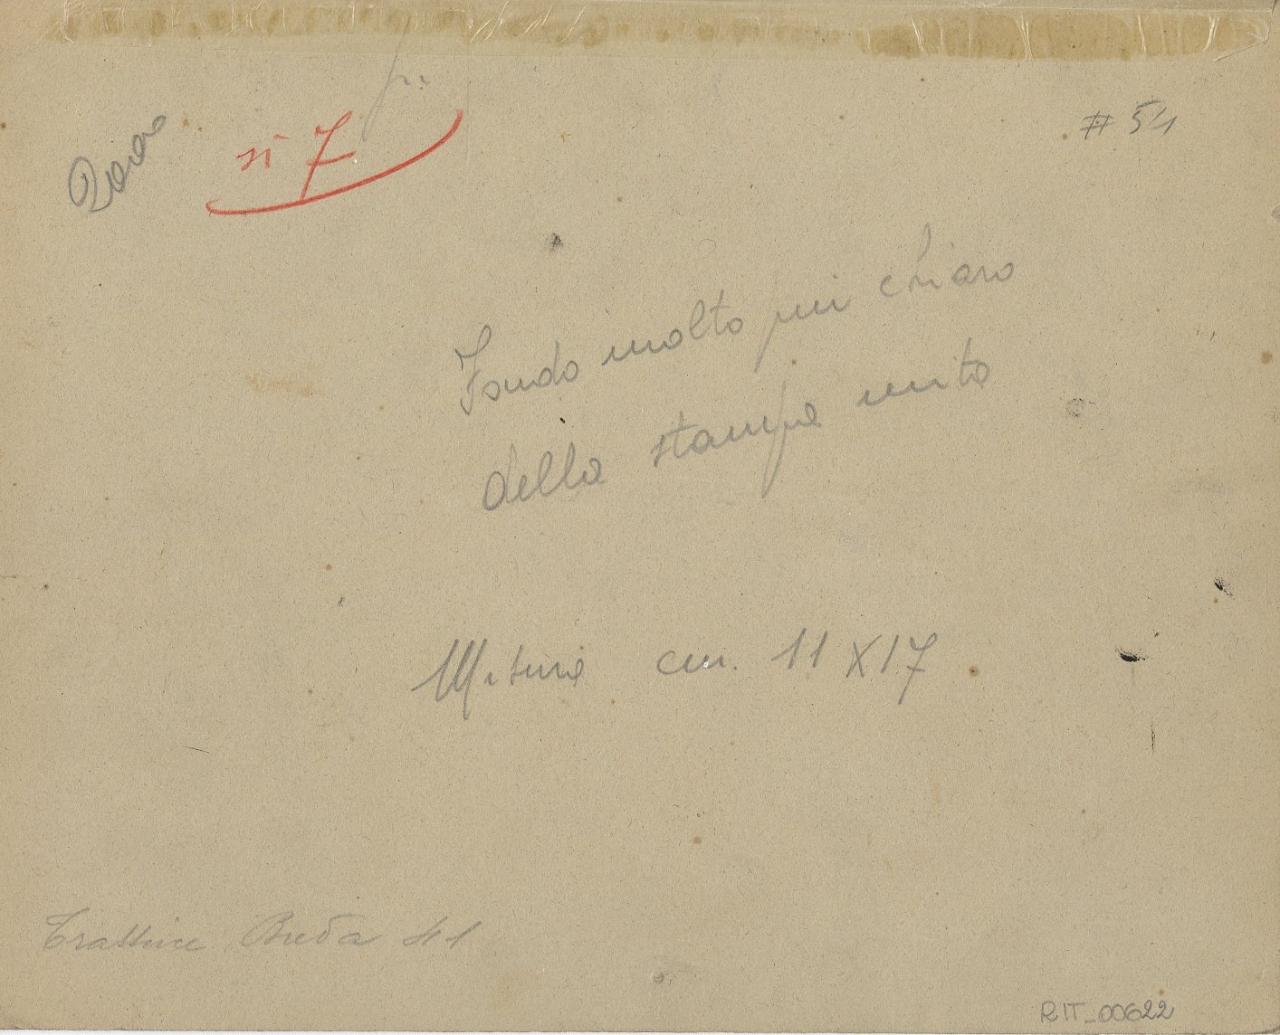 sì 7
# 54
Fondo molto più chiaro
della stampa unita
Misura cm. 11 X 17
Trattrice Breda 41
RIT_00622